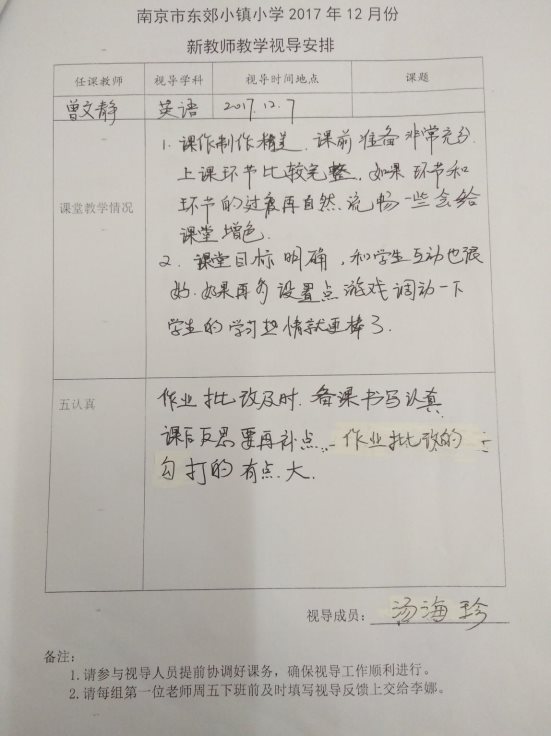 南京市东郊小镇小学 2017 年 12 月份
新教师教学视导安排
任课教师 视导学科 视导时间地点 课题
曾文静 英语 2017.12.7
课堂教学情况
1. 课件制作精美，课前准备非常充分.
上课环节比较完整，如果环节和
环节的过度再自然、流畅一些会给
课堂增色.
2. 课堂目标明确，和学生互动也很
好.如果再多设置点游戏调动一下
学生的学习热情就更棒了.
五认真
作业批改及时.备课书写认真
课后反思要再补点. 作业批改的
勾打的有点大.
视导成员：汤海珍
备注：
1.请参与视导人员提前协调好课务，确保视导工作顺利进行。
2.请每组第一位老师周五下班前及时填写视导反馈上交给李娜。